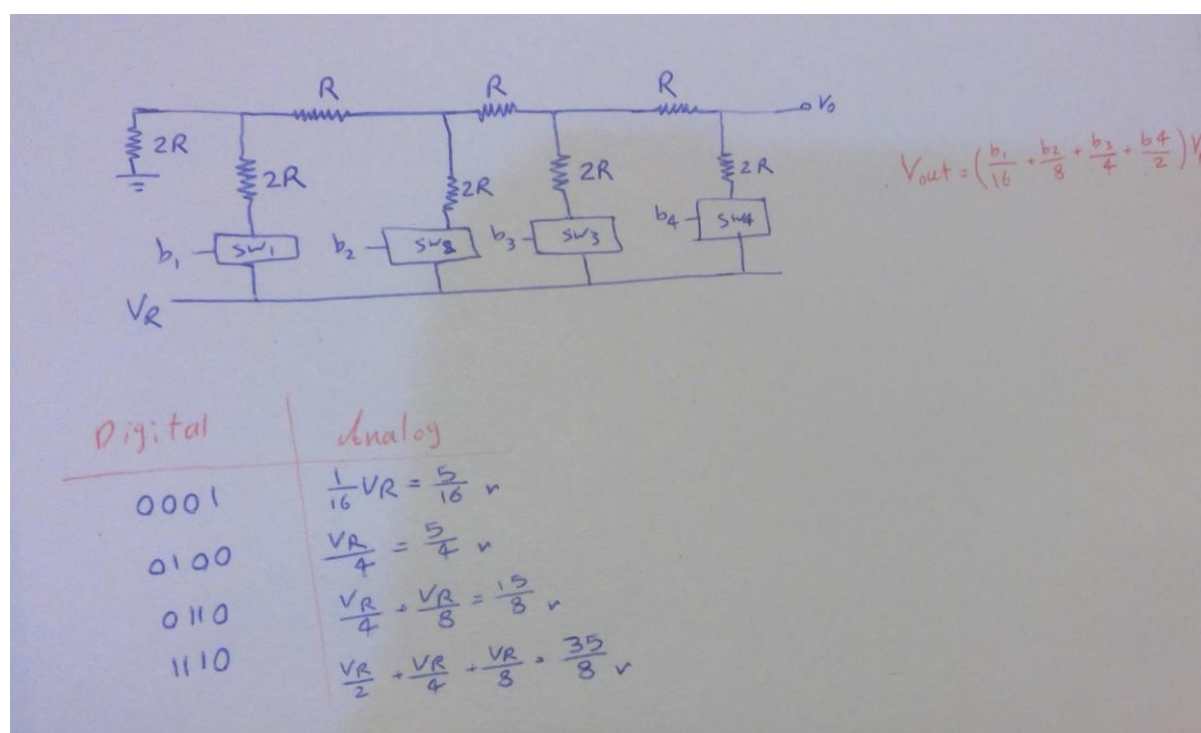 R R R
V₀
2R 2R 2R 2R 2R
b₁ SW₁ b₂ SW2 b₃ SW₃ b₄ SW4
V_R
Vout = (b₁/16 + b₂/8 + b₃/4 + b4/2) V
Digital Analog
0001 1/16 VR = 5/16 v
0100 VR/4 = 5/4 v
0110 VR/4 + VR/8 = 15/8 v
1110 VR/2 + VR/4 + VR/8 = 35/8 v